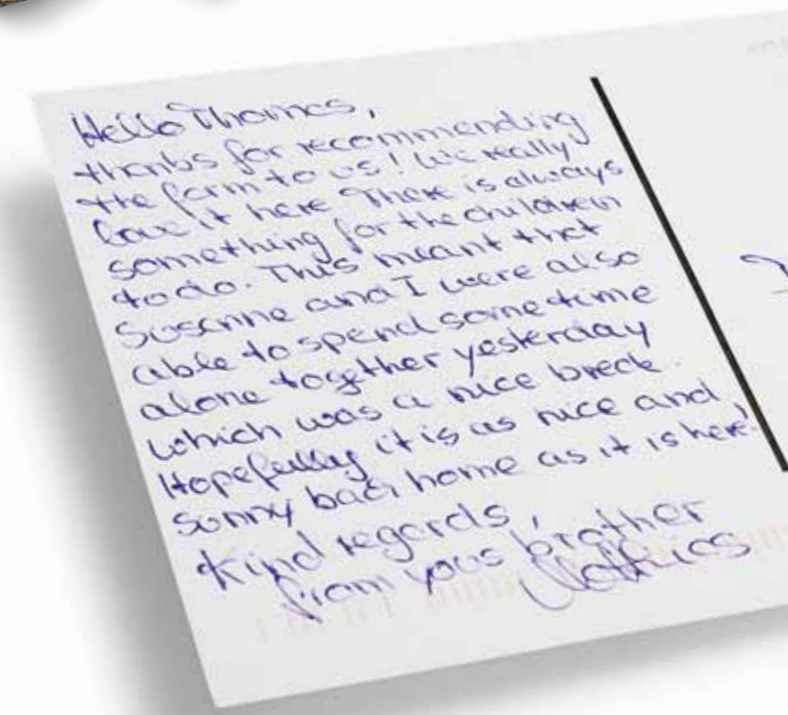 Hello Thomas,
thanks for recommending
the farm to us! We really
love it here There is always
something for the children
to do. This meant that
Susanne and I were also
able to spend some time
alone together yesterday
which was a nice break.
Hopefully it is as nice and
sunny back home as it is here!
Kind regards,
from your brother